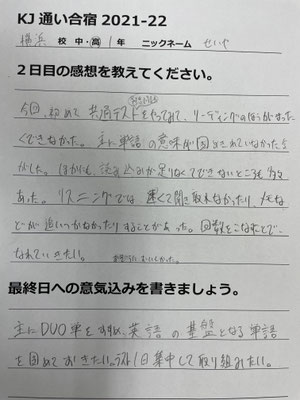 KJ 通い合宿 2021-22
横浜 校 中・高 1年 ニックネーム せいや
２日目の感想を教えてください。
今回、初めて共通テストをやってみて、リーディングのほうがまった
くできなかった。主に単語の意味が固められていなかった
がした。ほかにも、読み込みが足りなくてできないところも
あった。リスニングでは、速くて聞き取れなかったり、メモな
どが追いつかなかったりすることがあった。回数をこなすことで、
なれていきたい。
最終日への意気込みを書きましょう。
主にDUO単をすすめ、英語の基盤となる単語
を固めておきたい。ラスト1日集中して取り組みたい。